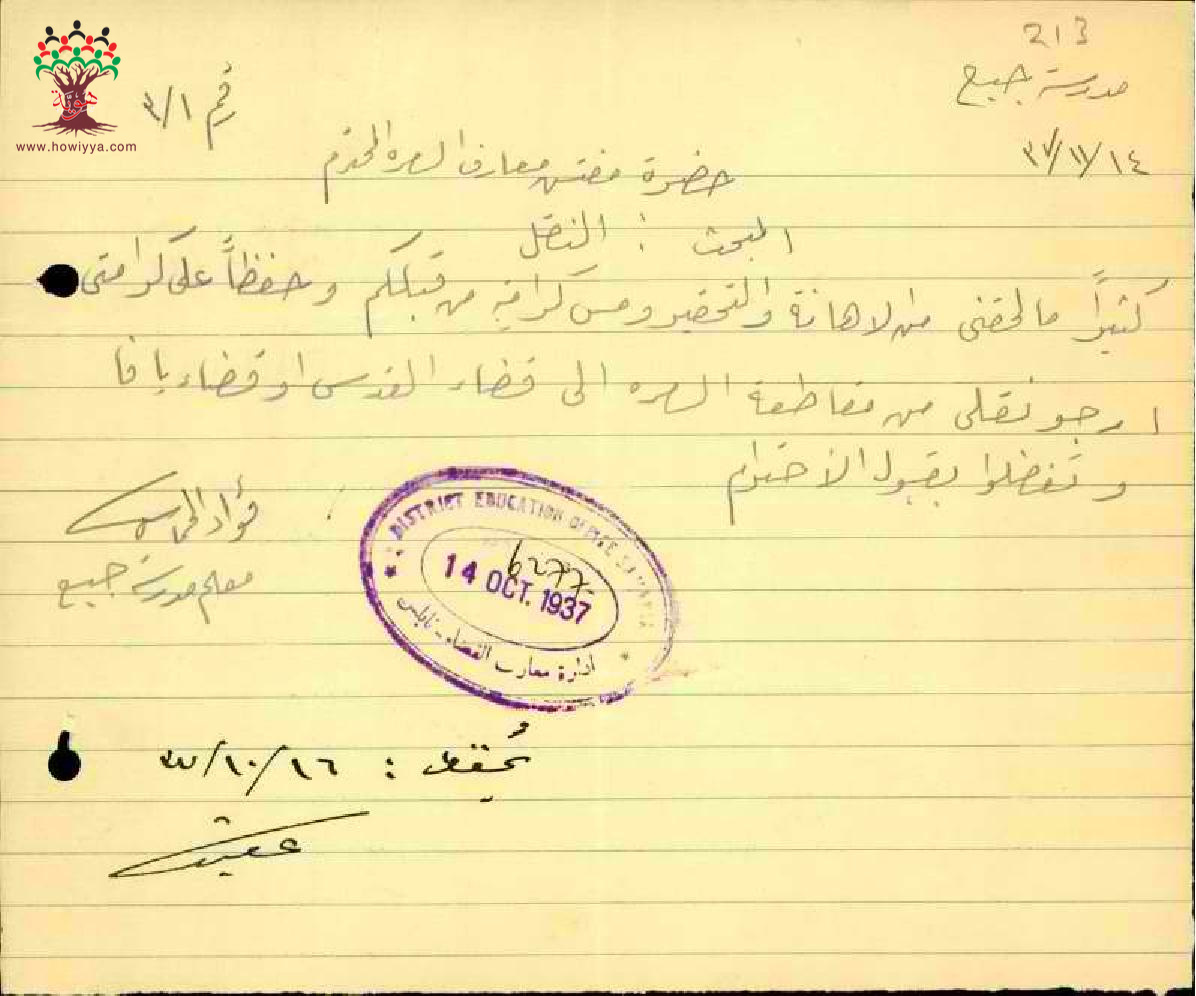 213
مدرسة جبع
رقم ٣/١
٣٧/١١/١٤
هوية
www.howiyya.com
حضرة مفتش معارف السمره المحترم
المبحث : النقل
كثيراً ما لحقني من الاهانة والتحقير ومس كرامة من قبلكم وحفظاً على كرامتي
ارجو نقلي من مقاطعة السمره الى قضاء القدس او قضاء يافا
وتفضلوا بقبول الاحترام
فؤاد
معلم مدرسة جبع
DISTRICT EDUCATION OFFICE SAMARIA
6277
14 OCT. 1937
ادارة معارف القضاء - نابلس
يُحفظ : ٣٧/١٠/١٦